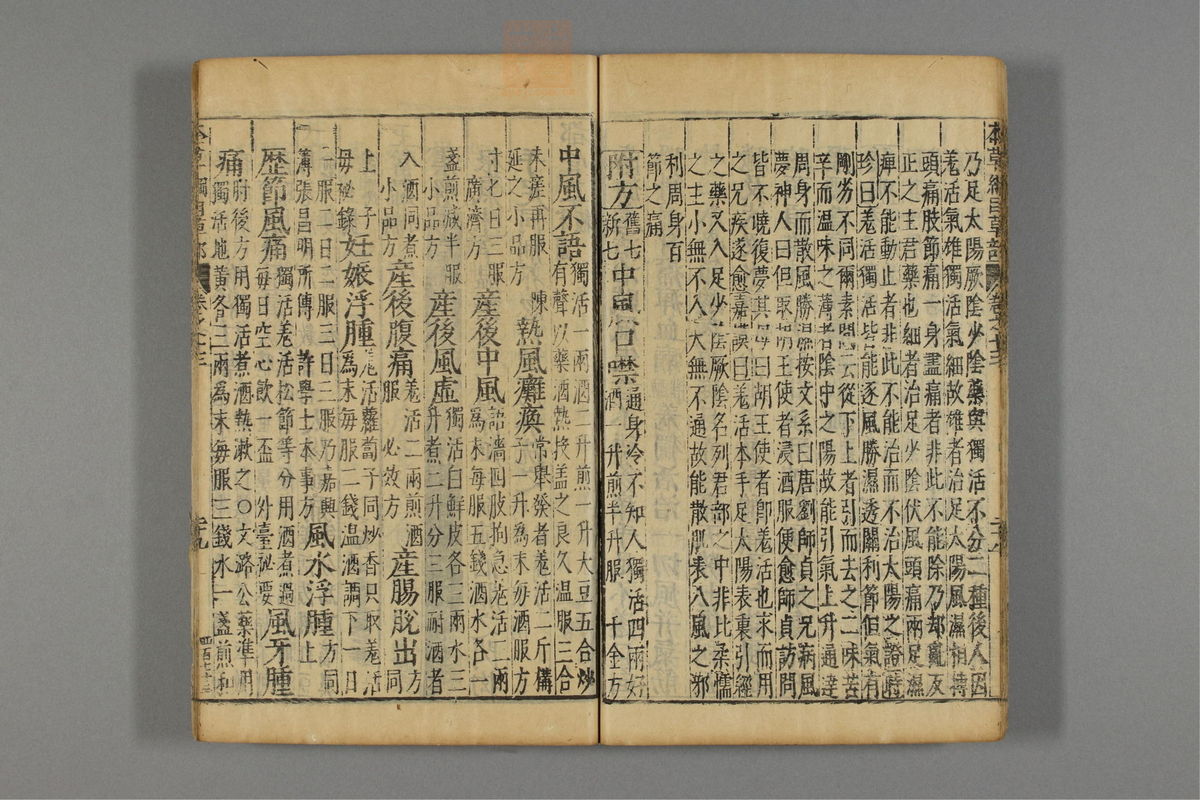 本草綱目草部 卷之十三
乃足太陽厥陰少陰藥與獨活不分二種後人因
羗活氣雄獨活氣細故雄者治足太陽風濕相搏
頭痛肢節痛一身盡痛者非此不能除乃却亂反
正之主君藥也細者治足少陰伏風頭痛兩足濕
痺不能動止者非此不能治而不治太陽之證時
珍曰羗活獨活皆能逐風勝濕透關利節但氣有
剛劣不同爾素問云從下上者引而去之二味苦
辛而温味之薄者陰中之陽故能引氣上升通達
周身而散風勝濕按文系曰唐劉師貞之兄病風
夢神人曰但取胡王使者浸酒服便愈師貞訪問
皆不曉復夢其母曰胡王使者卽羗活也求而用
之兄疾遂愈嘉謨曰羗活本手足太陽表裏引經
之藥又入足少陰厥陰名列君部之中非比柔懦
之主小無不入大無不通故能散肌表八風之邪
利周身百
節之痛
附方 舊七 新七 中風口噤 通身冷不知人獨活四兩好
酒一升煎半升服 千金方
中風不語 獨活一兩酒二升煎一升大豆五合炒
有聲以藥酒熱投盖之良久温服三合
未瘥再服 陳
延之小品方 熱風癱瘓 常舉發者羗活二斤搆
子一升爲末每酒服方
寸匕日三服
廣濟方 產後中風 語澁四肢拘急羗活三兩
爲末每服五錢酒水各一
盞煎減半服
小品方 產後風虛 獨活白鮮皮各三兩水三
升煮二升分三服耐酒者
入酒同煮
小品方 產後腹痛 羗活二兩煎酒
服 必效方 產腸脫出 方同
上 子
母祕錄 妊娠浮腫 羗活蘿蔔子同炒香只取羗活
爲末每服二錢温酒調下一日
一服二日二服三日三服乃嘉興
薄張昌明所傳 許學士本事方 風水浮腫 方同
上
歷節風痛 獨活羗活松節等分用酒煮過
每日空心飲一盃 外臺祕要 風牙腫
痛 肘後方用獨活煮酒熱漱之〇文潞公藥凖用
獨活地黃各三兩爲末每服三錢水一盞煎和
本草綱目草部 卷之十三 二十九